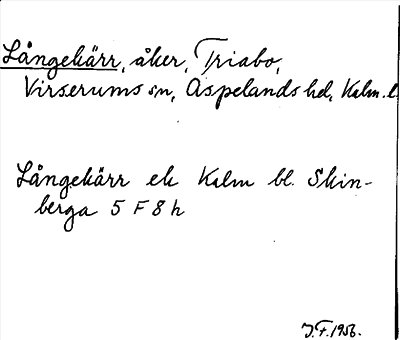 Långekärr, åker, Triabo,
Virserums sn, Aspelands hd, Kalm. l.
Långekärr ek Kalm bl. Skin-
berga 5 F 8 h
J.F. 1956.